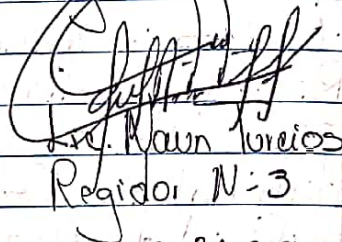 Lic. Naun Turcios
Regidor N: 3